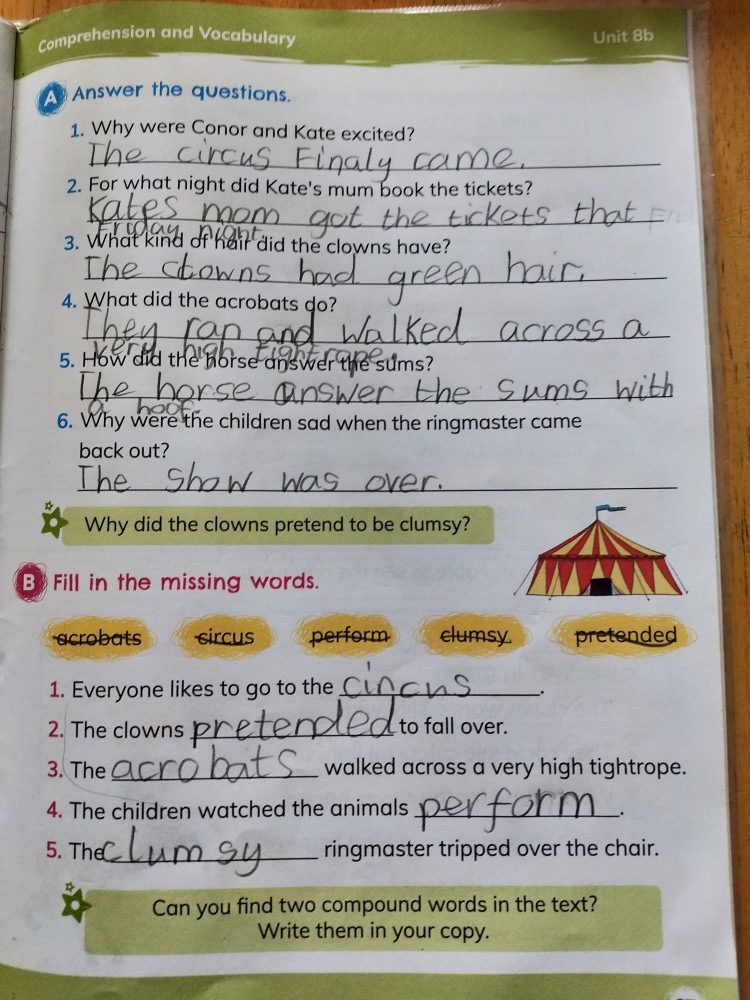 Comprehension and Vocabulary Unit 8b
A Answer the questions.
1. Why were Conor and Kate excited?
The circus Finaly came.
2. For what night did Kate's mum book the tickets?
Kates mom got the tickets that
Friday night.
3. What kind of hair did the clowns have?
The clowns had green hair.
4. What did the acrobats do?
They ran and walked across a
very high tightrope.
5. How did the horse answer the sums?
The horse answer the sums with
a hoof.
6. Why were the children sad when the ringmaster came
back out?
The show was over.
Why did the clowns pretend to be clumsy?
B Fill in the missing words.
acrobats circus perform clumsy pretended
1. Everyone likes to go to the circus.
2. The clowns pretended to fall over.
3. The acrobats walked across a very high tightrope.
4. The children watched the animals perform.
5. The clumsy ringmaster tripped over the chair.
Can you find two compound words in the text?
Write them in your copy.